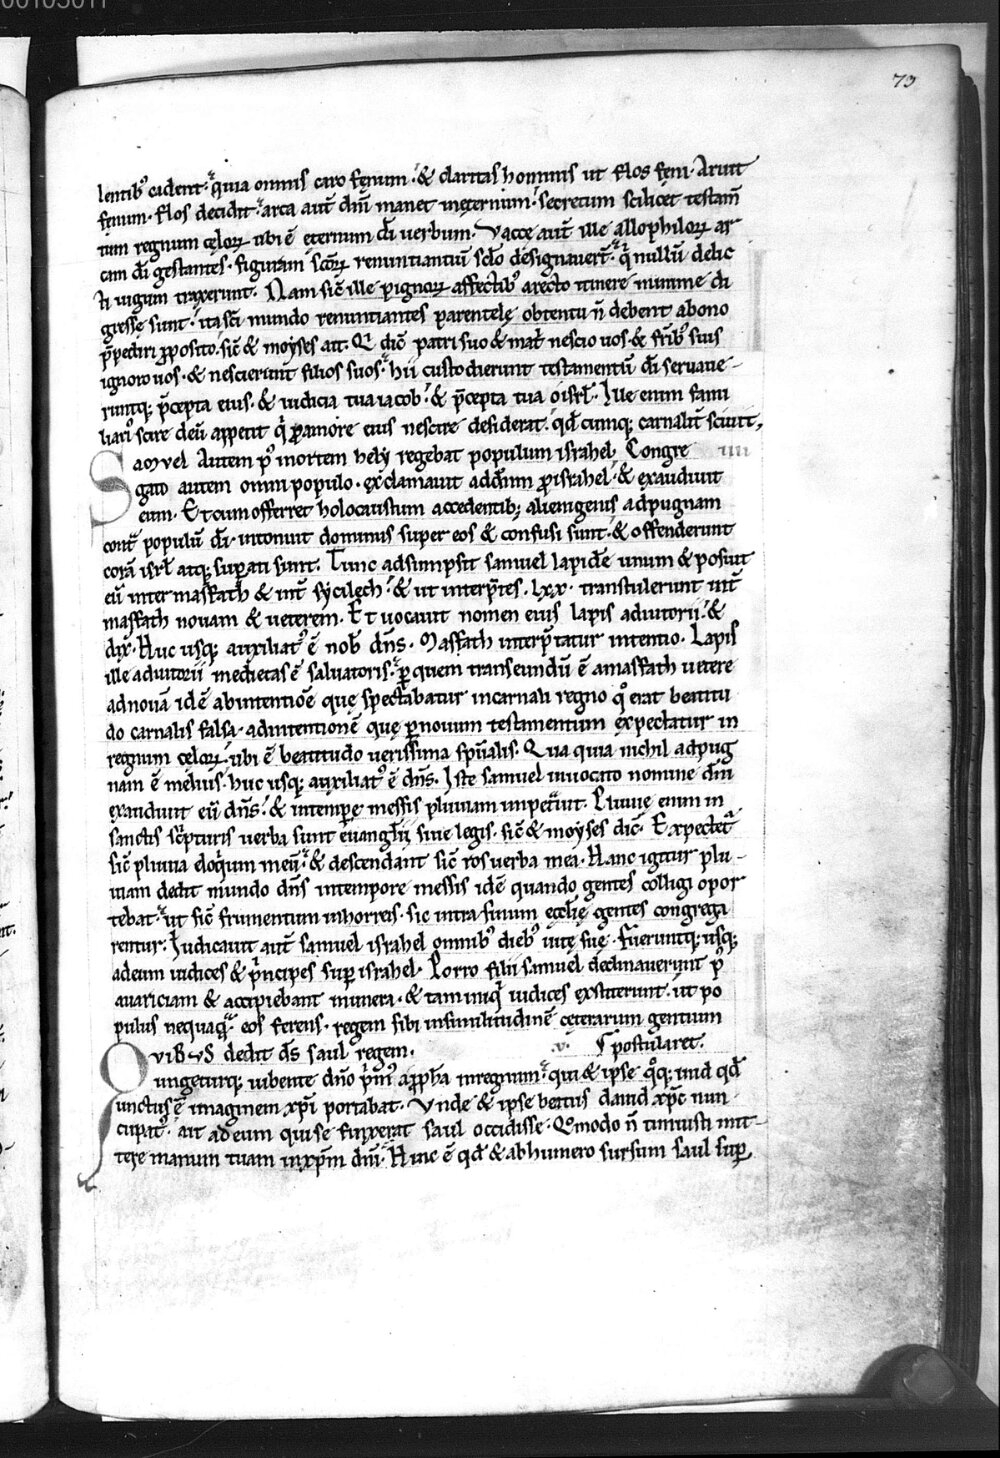 73
lentib; cadent. quia omnis caro fęnum. & claritas hominis ut flos fęni. Aruit
fęnum. flos decidit. arca aut̄ dn̄i manet inęternum. secretum scilicet testam̄
tum regnum cęloꝝ ubi ē ęternum dī uerbum. Vaccę aut̄ ille allophiloꝝ ar
cam dī gestantes. figuram sc̄oꝝ renuntiantiū sclo designauer̄t. qͥ nullū delic
ti iugum traxerunt. Nam sic̄ ille pignoꝝ affectib; arecto itinere minime di
gressę sunt. ita sc̄i mundo renuntiantes parentelę obtentu n̄ debent abono
p̄pediri ꝓposito. sic̄ & moyses ait. Qͥ dic̄ patri suo & mat̄ nescio uos. & fr̄ib; suis
ignoro uos. & nescierunt filios suos. hii custodierunt testamentū dī seruaue-
runtq; p̄cepta eius. & iudicia tua iacob. & p̄cepta tua o isrl̄. Ille enim fami
liari scire deū appetit qͥ ꝑ amore eius nescire desiderat. qd̄ cumq; carnalit̄ sciuit,
Samvel Autem p̄ mortem hely regebat populum israhel. Congre iiii
gato autem omni populo. exclamauit add̄nm ꝓ israhel. & exaudiuit
eum. Et cum offerret holocaustum accedentib; alienigenis adpugnam
contͣ populū dī. intonuit dominus super eos & confusi sunt. & offenderunt
corā isrl̄ atq; suꝑati sunt. Tunc adsumpsit samuel lapidē unum & posuit
eū inter masfath & int̄ sycilech. & ut interp̄tes .lxx. transtulerunt int̄
masfath nouam & ueterem. Et uocauit nomen eius lapis adiutorii. &
dix̄. Huc usq; auxiliatͥ ē nob̄ dn̄s. Masfath interp̄tatur intentio. Lapis
ille adiutorii medietas ē saluatoris. ꝑ quem transeundū ē amasfath uetere
adnouā idē abintentiōe quę spectabatur incarnali regno qͦ erat beatitu
do carnalis falsa. adintentionē quę ꝑ nouum testamentum expectatur in
regnum cęloꝝ. ubi ē beatitudo uerissima spūalis. Qua quia nichil adpug
nam ē melius. huc usq; auxiliatͥ ē dn̄s. Iste samuel inuocato nomine dn̄i
exaudiuit eū dn̄s. & intempe messis pluuiam impetͣuit. Pluuię enim in
sanctis sc̄pturis uerba sunt euanglii siue legis. sic̄ & moyses dic̄. Expectetͬ
sic̄ pluuia eloqͥum meū. & descendant sic̄ ros uerba mea. Hanc igitur plu-
uiam dedit mundo dn̄s intempore messis idē quando gentes colligi opor
tebat. ut sic̄ frumentum inhorreis. sic intra sinum ęcclię gentes congrega
rentur. Iudicauit aut̄ samuel israhel omnib; dieb; uitę suę. Fueruntq; usq;
adeum iudices & p̄ncipes suꝑ israhel. Porro filii samuel declinauerunt p̄
auariciam & accipiebant munera. & tam iniqͥ iudices exstiterunt. ut po
pulus nequaqͣ eos ferens. regem sibi insimilitudinē ceterarum gentium
Qvibus dedit ds̄ saul regem. .v. postularet.
ungeturq; iubente dn̄o pͥmͥ a ꝓph̄a inregnum. qui & ipse qͦq; inid qd̄
unctus ē imaginem xp̄i portabat. Vnde & ipse beatus dauid xp̄c nun-
cupat. ait adeum qui se finxerat saul occidisse. Qͦmodo n̄ timuisti mit-
tere manum tuam inxp̄m dn̄i. Hinc ē qd̄ & abhumero sursum saul suꝑ